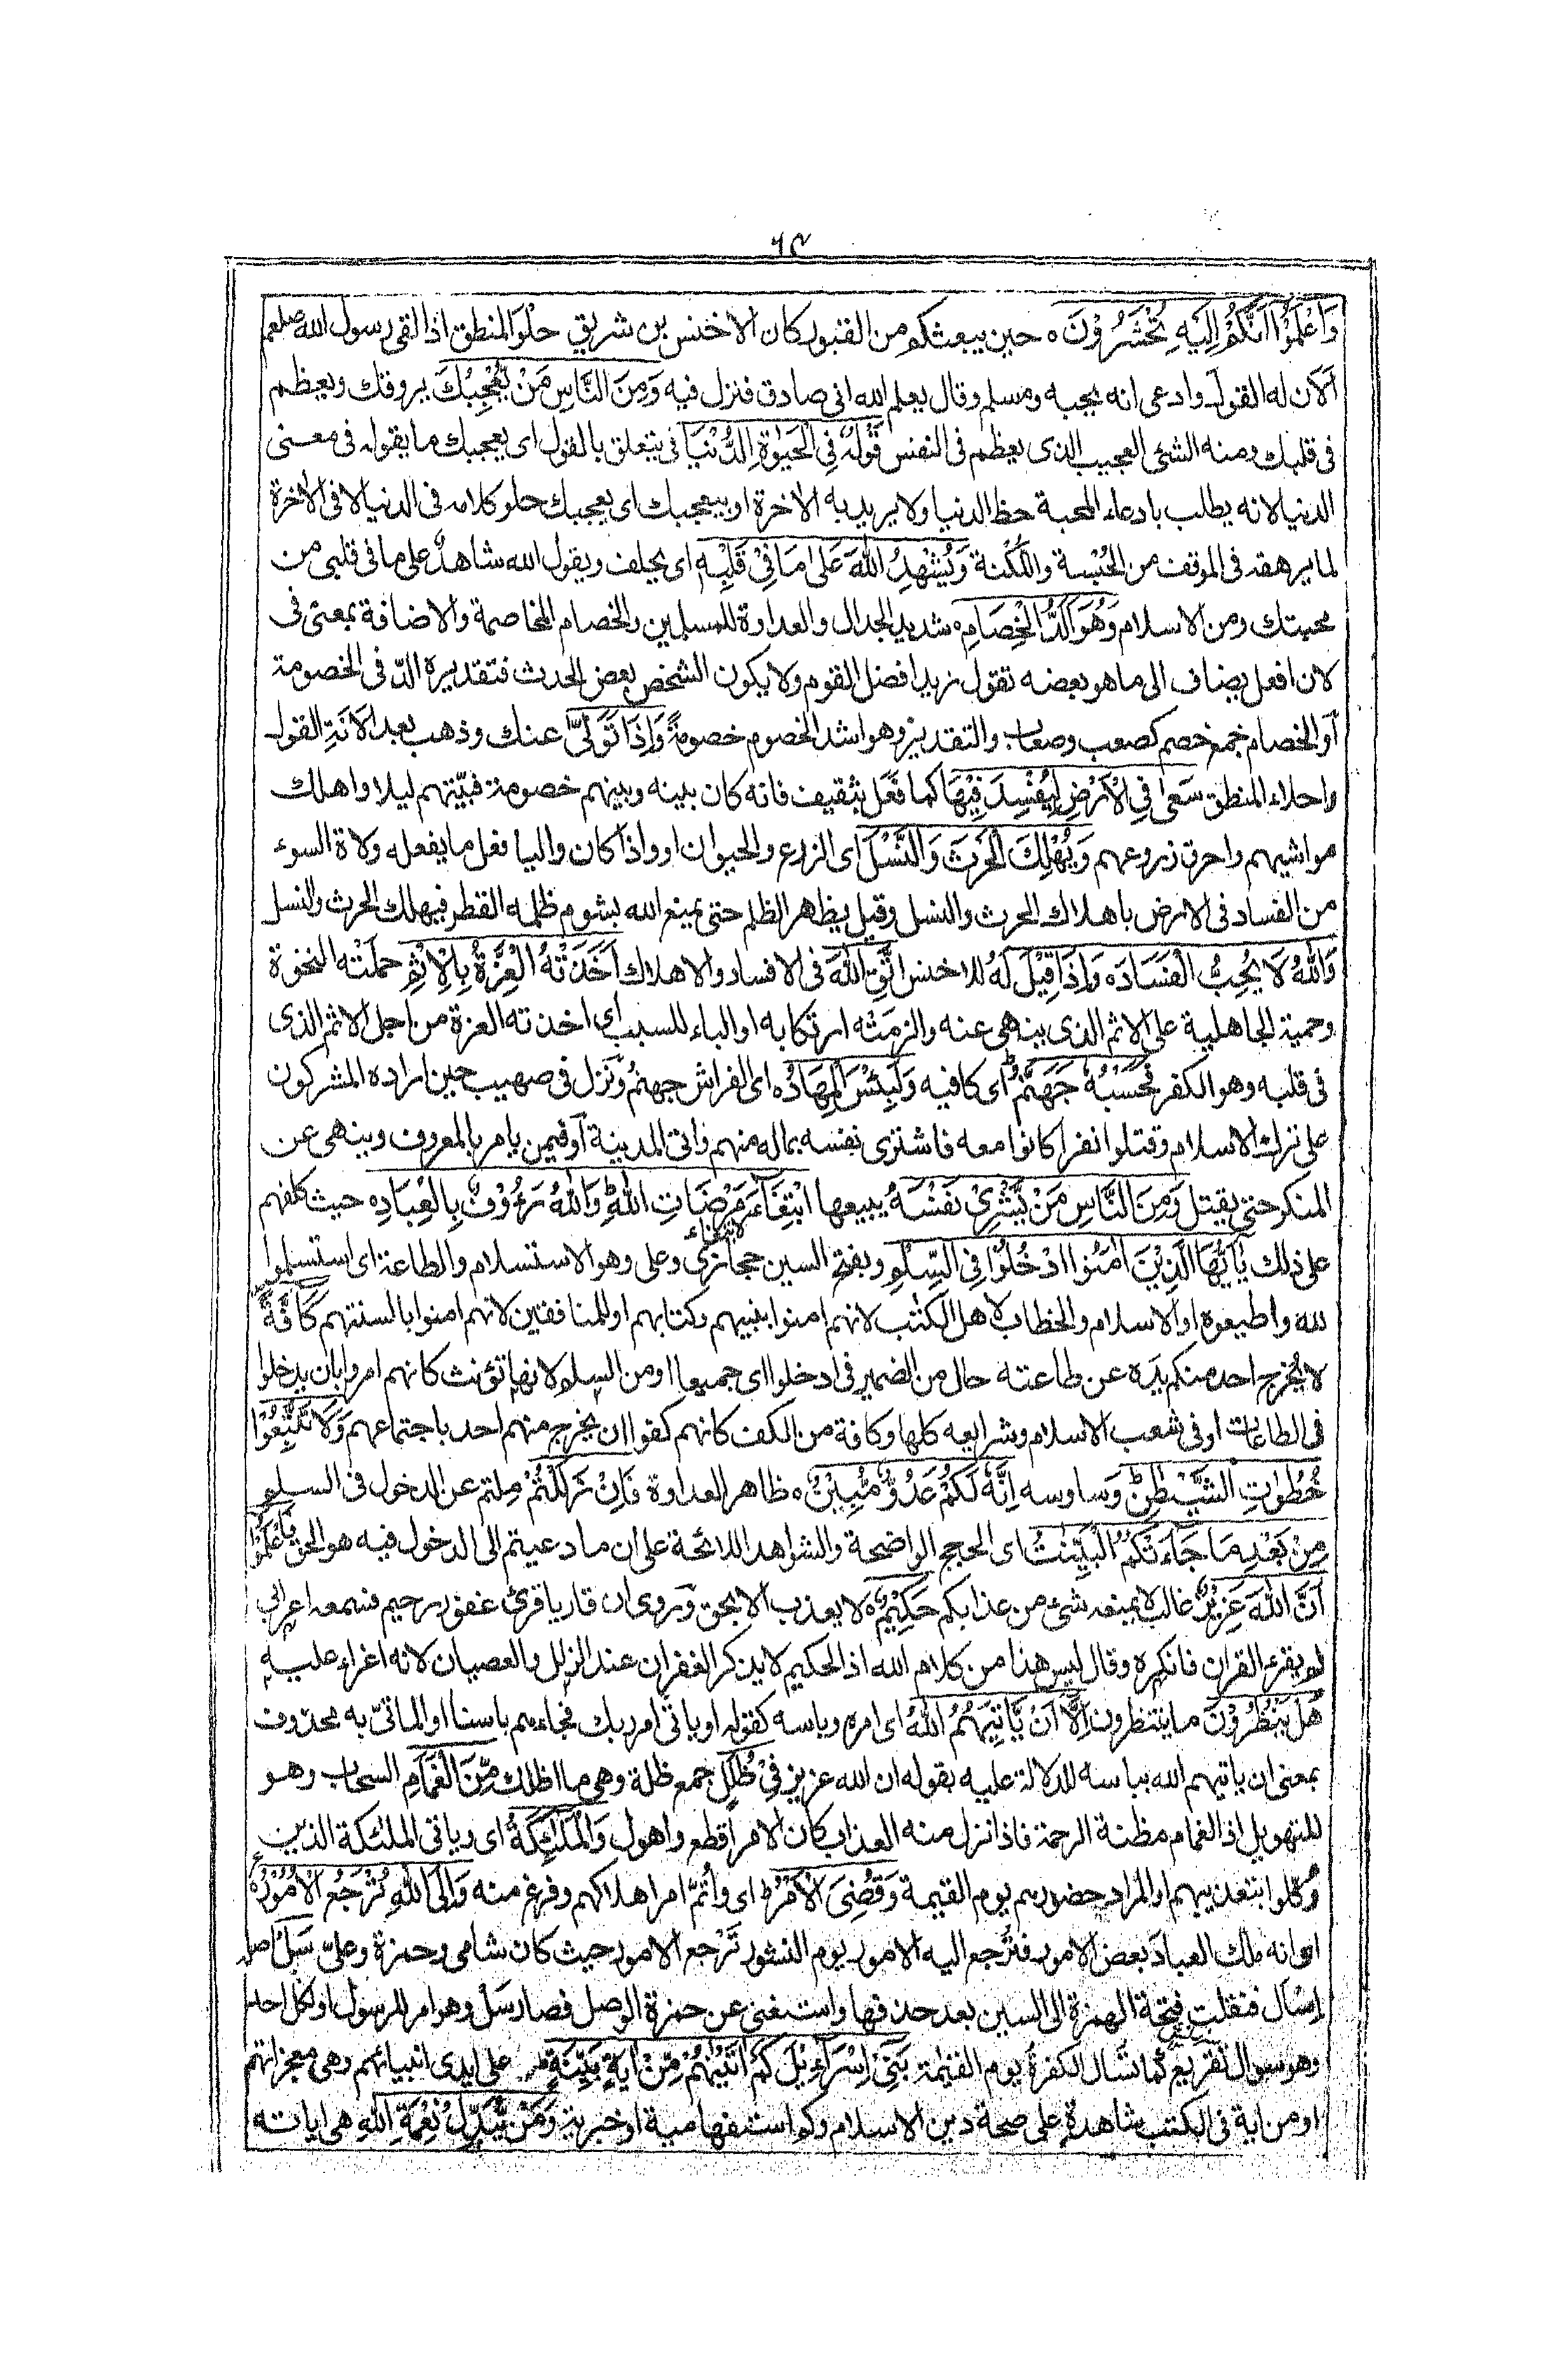 ٦٩
وَاعْلَمُوْٓا اَنَّكُمْ اِلَيْهِ تُحْشَرُوْنَ ه حين يبعثكم من القبور كان الاخنس بن شريق حلو المنطق اذا لقى رسول الله صلعم
اَلان له القول وادعى انه يحبه ومسلم وقال يعلم الله انى صادق فنزل فيه وَمِنَ النَّاسِ مَنْ يُّعْجِبُكَ يروقك ويعظم
فى قلبك ومنه الشئ العجيب الذى يعظم فى النفس قَوْلُهٗ فِى الْحَيٰوةِ الدُّنْيَا فى يتعلق بالقول اى يعجبك ما يقوله فى معنى
الدنيا لانه يطلب بادعاء المحبة حظ الدنيا ولا يريد به الاخرة او بيعجبك اى يعجبك حلو كلامه فى الدنيا لا فى الاخرة
لما يرهقه فى الموقف من الحُبْسة واللُّكْنة وَيُشْهِدُ اللّٰهَ عَلٰى مَا فِيْ قَلْبِهٖ اى يحلف ويقول الله شاهدٌ على ما فى قلبى من
محبتك ومن الاسلام وَهُوَ اَلَدُّ الْخِصَامِ ه شديد الجدال والعداوة للمسلمين والخصام المخاصمة والاضافة بمعنى فى
لان افعل يضاف الى ما هو بعضه تقول زيد افضل القوم ولا يكون الشخص بعض الحدث فتقديره الدّ فى الخصومة
اَو الخصام جمع خصم كصعب وصعاب والتقدير وهو اشد الخصوم خصومةً وَاِذَا تَوَلّٰى عنك وذهب بعد الانة القول
واحلاء المنطق سَعٰى فِى الْاَرْضِ لِيُفْسِدَ فِيْهَا كما فَعَل بثقيف فانه كان بينه وبينهم خصومة فبيّتهم ليلا واهلك
مواشيهم واحرق زروعهم وَيُهْلِكَ الْحَرْثَ وَالنَّسْلَ اى الزرع والحيوان او واذا كان واليا فعل ما يفعله ولاة السوء
من الفساد فى الارض باهلاك الحرث والنسل وقيل يظهر الظلم حتى يمنع الله بشوم ظلمه القطر فيهلك الحرث والنسل
وَاللّٰهُ لَا يُحِبُّ الْفَسَادَ ه وَاِذَا قِيْلَ لَهُ للاخنس اتَّقِ اللّٰهَ فى الافساد والاهلاك اَخَذَتْهُ الْعِزَّةُ بِالْاِثْمِ حملته النخوة
وحمية الجاهلية على الاثم الذى ينهى عنه والزمَتْه ارتكابه او الباء للسبب اى اخذته العزة من اجل الاثم الذى
فى قلبه وهو الكفر فَحَسْبُهٗ جَهَنَّمُ ط اى كافيه وَلَبِئْسَ الْمِهَادُ ه اى الفراش جهنمُ ونَزل فى صهيب حين اراده المشركون
على ترك الاسلام وقتلوا نفرا كانوا معه فاشترى نفسه بماله منهم واتى المدينة اَو فيمن يامر بالمعروف وينهى عن
المنكر حتى يقتل وَمِنَ النَّاسِ مَنْ يَّشْرِيْ نَفْسَهُ يبيعها ابْتِغَآءَ لابتغاء مَرْضَاتِ اللّٰهِ ط وَاللّٰهُ رَءُوْفٌۢ بِالْعِبَادِ ه حيث كلفهم
على ذلك يٰٓاَيُّهَا الَّذِيْنَ اٰمَنُوا ادْخُلُوْا فِى السِّلْمِ وبفتح السين حجازى وعلى وهو الاستسلام والطاعة اى استسلموا
لله واطيعوه او الاسلام والخطاب لاهل الكتب لانهم امنوا بنبيهم وكتابهم او للمنافقين لانهم امنوا بالسنتهم كَآفَّةً
لا يُخرج احد منكم يَدَه عن طاعته حال من الضمير فى ادخلوا اى جميعا او من السلم لانها تؤنث كانهم امروا بان يدخلوا
فى الطاعات او فى شعب الاسلام وشرايعه كلها وكافة من الكف كانهم كفوا ان يخرج منهم احد باجتماعهم وَلَا تَتَّبِعُوْا
خُطُوٰتِ الشَّيْطٰنِ ط وَساوسه اِنَّهٗ لَكُمْ عَدُوٌّ مُّبِيْنٌ ه ظاهر العداوة فَاِنْ زَلَلْتُمْ مِلتم عن الدخول فى السلم
مِنْۢ بَعْدِ مَا جَآءَتْكُمُ الْبَيِّنٰتُ اى الحجج الواضحة والشواهد اللائحة على ان ما دعيتم الى الدخول فيه هو الحق فَاعْلَمُوْٓا
اَنَّ اللّٰهَ عَزِيْزٌ غالب لا يمنعه شئ من عذابكم حَكِيْمٌ ه لا يعذب الا بحق وَروى ان قاريا قرئ غفور رحيم فسمعه اعرابى
لم يقرء القران فانكره وقال ليس هذا من كلام الله اذ الحكيم لا يذكر الغفران عند الزلل والعصيان لانه اغراء عليه
هَلْ يَنْظُرُوْنَ ما ينتظرون اِلَّآ اَنْ يَّاْتِيَهُمُ اللّٰهُ اى امره وباسه كقوله او ياتى امر ربك فجاءهم باسنا او الماتىّ به محذوف
بمعنى ان ياتيهم الله بباسه للدلالة عليه بقوله ان الله عزيز فِيْ ظُلَلٍ جمع ظلة وهى ما اظلك مِّنَ الْغَمَامِ السحاب وهو
للتهويل اذ الغمام مظنة الرحمة فاذا نزل منه العذاب كان الامر اقطع واهول وَالْمَلٰٓئِكَةُ اى وياتى الملئكة الذين
وُكّلوا بتعذيبهم او المراد حضورهم يوم القيمة وَقُضِيَ الْاَمْرُ ط اى وأُتمّ امر اهلاكهم وفرغ منه وَاِلَى اللّٰهِ تُرْجَعُ الْاُمُوْرُ ه
اى انه ملك العباد بعض الامور فتُرجع اليه الامور يوم النشور تَرْجع الامور حيث كان شامى وحمزة وعلىّ سَلْ اصله
اِسْاَل فنقلت فتحة الهمزة الى السين بعد حذفها واستغنى عن همزة الوصل فصار سَلْ وهو امر للرسول او لكل احد
وهو سوال تقريع كما تسْال الكفرةُ يوم القيٰمة بَنِيْٓ اِسْرَآءِيْلَ كَمْ اٰتَيْنٰهُمْ مِّنْ اٰيَةٍۢ بَيِّنَةٍ ط على ايدى انبيائهم وهى معجزاتهم
او من اية فى الكتب شاهدة على صحة دين الاسلام وكم استفهامية او خبرية وَمَنْ يُّبَدِّلْ نِعْمَةَ اللّٰهِ هى اياته